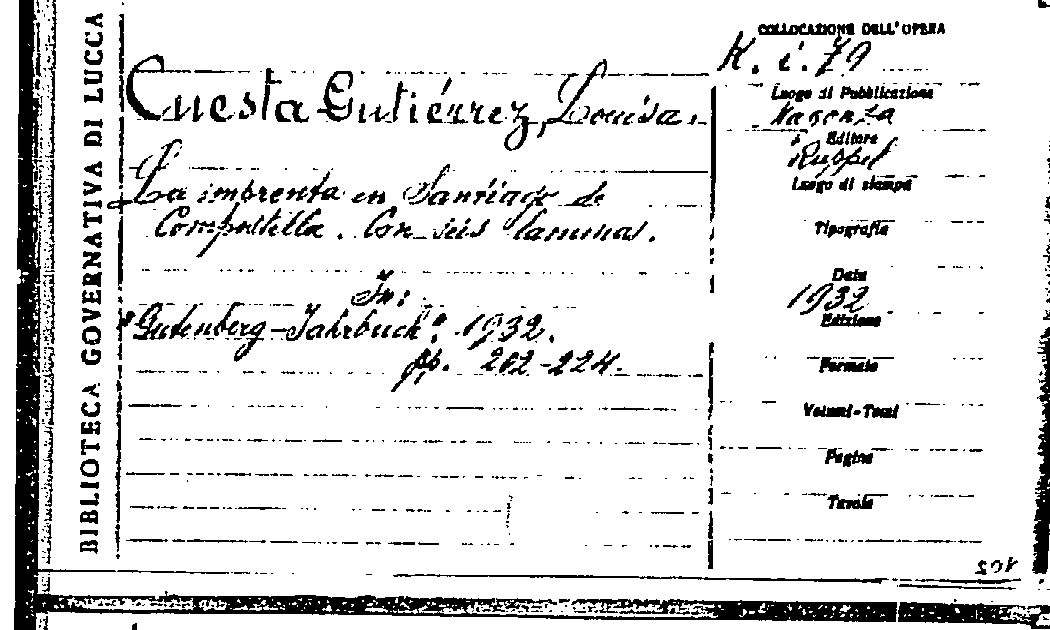 BIBLIOTECA GOVERNATIVA DI LUCCA
COLLOCAZIONE DELL'OPERA
K. i. 79
Cuesta Gutiérrez, Louisa.
La imprenta en Santiago de
Compostella. Con seis laminas.
In:
"Gutenberg-Jahrbuch". 1932.
pp. 202-224.
Luogo di Pubblicazione
Magonza
Editore
Ruppel
Luogo di stampa
Tipografia
Data
1932
Edizione
Formato
Volumi-Tomi
Pagine
Tavole